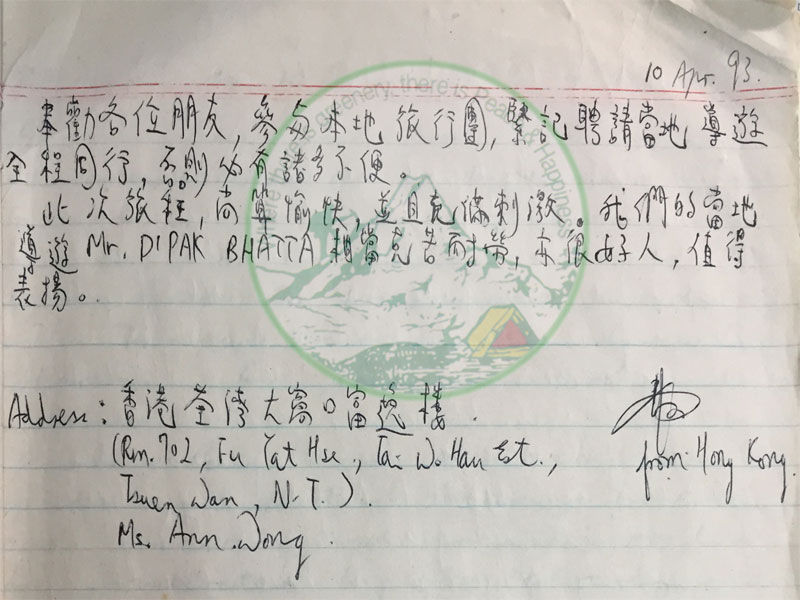 10 Apr. 93.
奉勸各位朋友，參與本地旅行團，緊記聘請當地導遊
全程同行，否則必有諸多不便。
此次旅程，尚算愉快，並且充滿刺激。我們的當地
導遊 Mr. DIPAK BHATTA 相當克苦耐勞，亦很好人，值得
表揚。
there is Peace & Happiness
Address: 香港荃灣大窩口富逸樓.
(Rm. 702, Fu Yat Hse., Tai Wo Hau Est.,
Tsuen Wan, N.T.).
Ms. Ann Wong.
from Hong Kong.